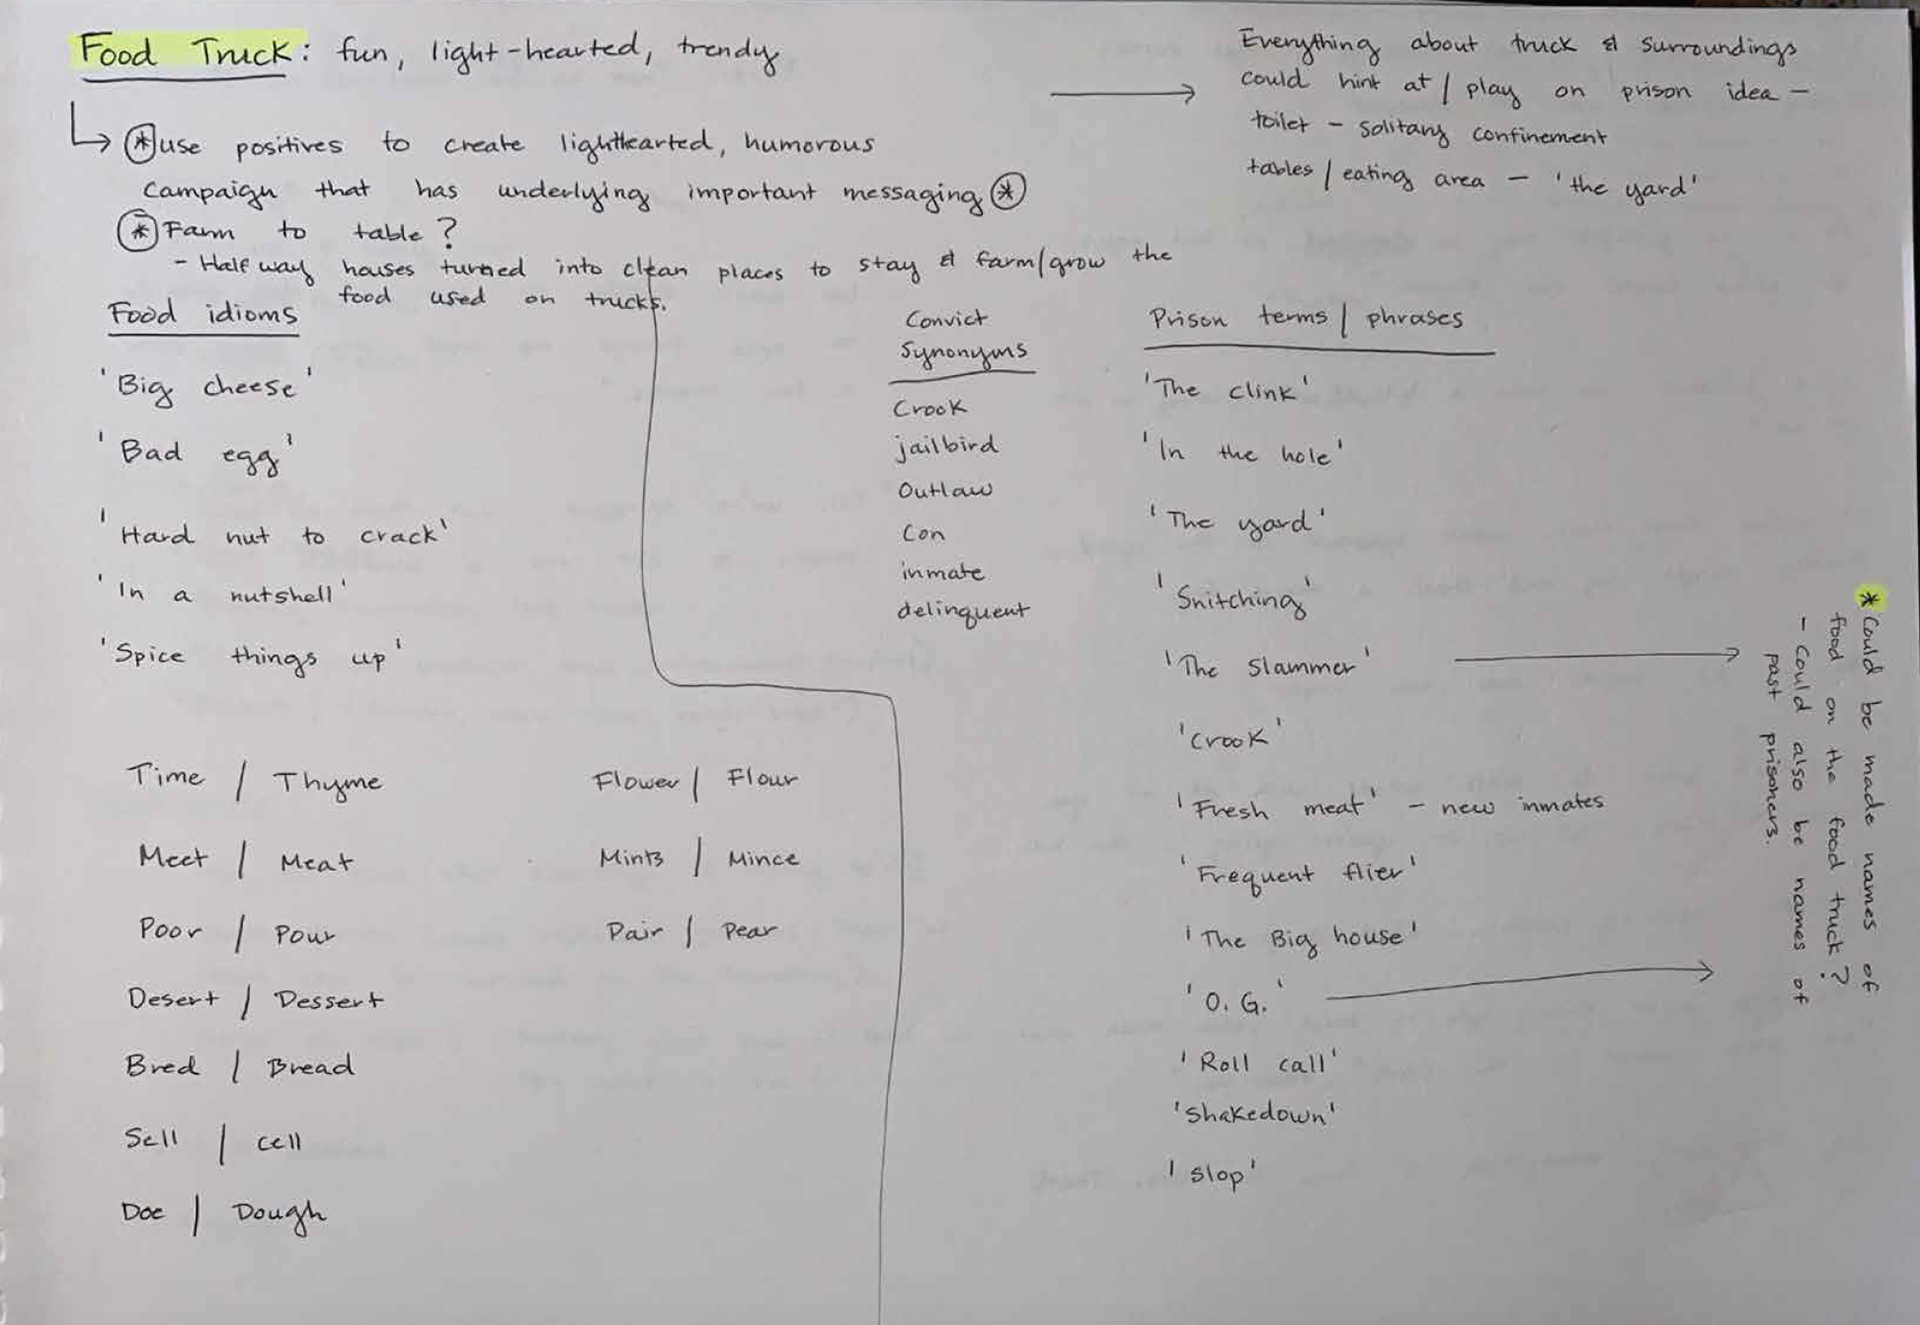 Food Truck: fun, light-hearted, trendy
*use positives to create lighthearted, humorous
campaign that has underlying important messaging *
* Farm to table?
- Half way houses turned into clean places to stay & farm/grow the
food used on trucks.
Everything about truck & surroundings
could hint at / play on prison idea –
toilet – solitary confinement
tables / eating area – 'the yard'
Food idioms
'Big cheese'
'Bad egg'
'Hard nut to crack'
'In a nutshell'
'Spice things up'
Time / Thyme
Meet / Meat
Poor / Pour
Desert / Dessert
Bred / Bread
Sell / cell
Doe / Dough
Flower / Flour
Mints / Mince
Pair / Pear
Convict
Synonyms
Crook
jailbird
Outlaw
Con
inmate
delinquent
Prison terms / phrases
'The clink'
'In the hole'
'The yard'
'Snitching'
'The Slammer'
'Crook'
'Fresh meat' – new inmates
'Frequent flier'
'The Big house'
'O.G.'
'Roll call'
'Shakedown'
'Slop'
* Could be made names of
food on the food truck?
- Could also be names of
past prisoners.